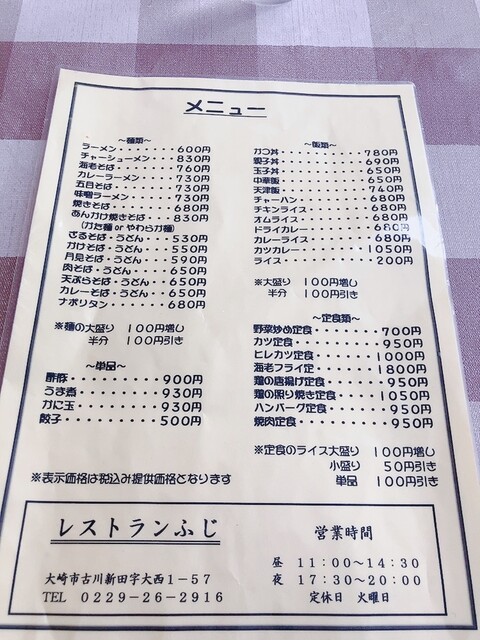 メニュー
～麺類～
ラーメン・・・・・・・・600円
チャーシューメン・・・・830円
海老そば・・・・・・・・760円
カレーラーメン・・・・・730円
五目そば・・・・・・・・730円
味噌ラーメン・・・・・・730円
焼きそば・・・・・・・・680円
あんかけ焼きそば・・・・830円
(かた麺 or やわらか麺)
ざるそば・うどん・・・・530円
かけそば・うどん・・・・550円
月見そば・うどん・・・・590円
肉そば・うどん・・・・・650円
天ぷらそば・うどん・・・650円
カレーそば・うどん・・・650円
ナポリタン・・・・・・・680円
※麺の大盛り 100円増し
半分 100円引き
～単品～
酢豚・・・・・・・・・900円
うま煮・・・・・・・・930円
かに玉・・・・・・・・930円
餃子・・・・・・・・・500円
～飯類～
かつ丼・・・・・・・・・780円
親子丼・・・・・・・・・690円
玉子丼・・・・・・・・・650円
中華飯・・・・・・・・・650円
天津飯・・・・・・・・・740円
チャーハン・・・・・・・680円
チキンライス・・・・・・680円
オムライス・・・・・・・680円
ドライカレー・・・・・・680円
カレーライス・・・・・・680円
カツカレー・・・・・・・1050円
ライス・・・・・・・・・200円
※大盛り 100円増し
半分 100円引き
～定食類～
野菜炒め定食・・・・・・700円
カツ定食・・・・・・・・950円
ヒレカツ定食・・・・・・1000円
海老フライ定・・・・・・1800円
鶏の唐揚げ定食・・・・・950円
鶏の照り焼き定食・・・・1050円
ハンバーグ定食・・・・・950円
焼肉定食・・・・・・・・950円
※定食のライス大盛り 100円増し
小盛り 50円引き
単品 100円引き
※表示価格は税込み提供価格となります
レストランふじ
大崎市古川新田字大西1－57
TEL 0229-26-2916
営業時間
昼 11:00～14:30
夜 17:30～20:00
定休日 火曜日